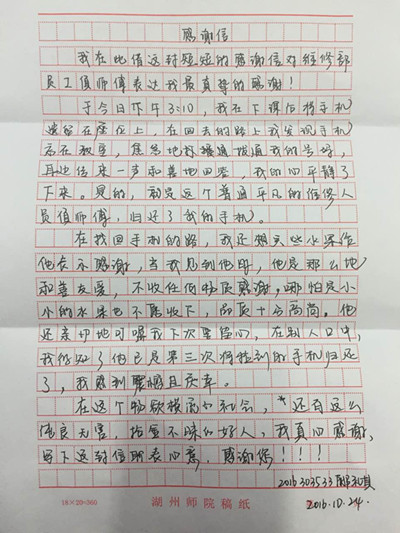 感谢信
我在此借这封短短的感谢信对维修部
员工值师傅表达我最真挚的感谢！
于今日下午3:10，我在下课后将手机
遗留在座位上，在回去的路上我发现手机
忘在教室，焦急地打电话拨通我的号码，
耳边传来一声和蔼地回答，我的心平静了
下来。是的，就是这个普通平凡的维修人
员值师傅，归还了我的手机。
在找回手机的路，我还想买些水果作
他表示感谢，当我见到他时，他是那么地
和善友爱，不收任何物质感谢，哪怕是小
小的水果也不愿收下，品质十分高尚。他
还亲切地叮嘱我下次要留心，在别人口中，
我得知了他已是第三次将捡到的手机归还
了，我感到震撼且庆幸。
在这个物欲横流的社会，还有这么
善良无害，拾金不昧的好人，我真心感谢，
写下这封信聊表心意，感谢您！！！！
2016303533
2016.10.24.
18×20=360 湖州师院稿纸